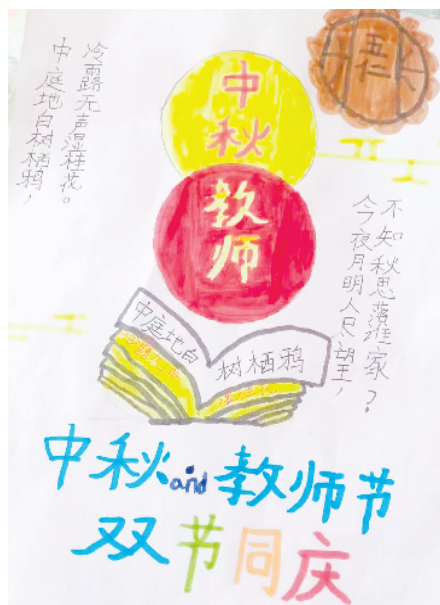 中庭地白树栖鸦，
冷露无声湿桂花。
中秋
教师
五仁
今夜月明人尽望，
不知秋思落谁家？
中庭地白
树栖鸦
中秋and教师节
双节同庆